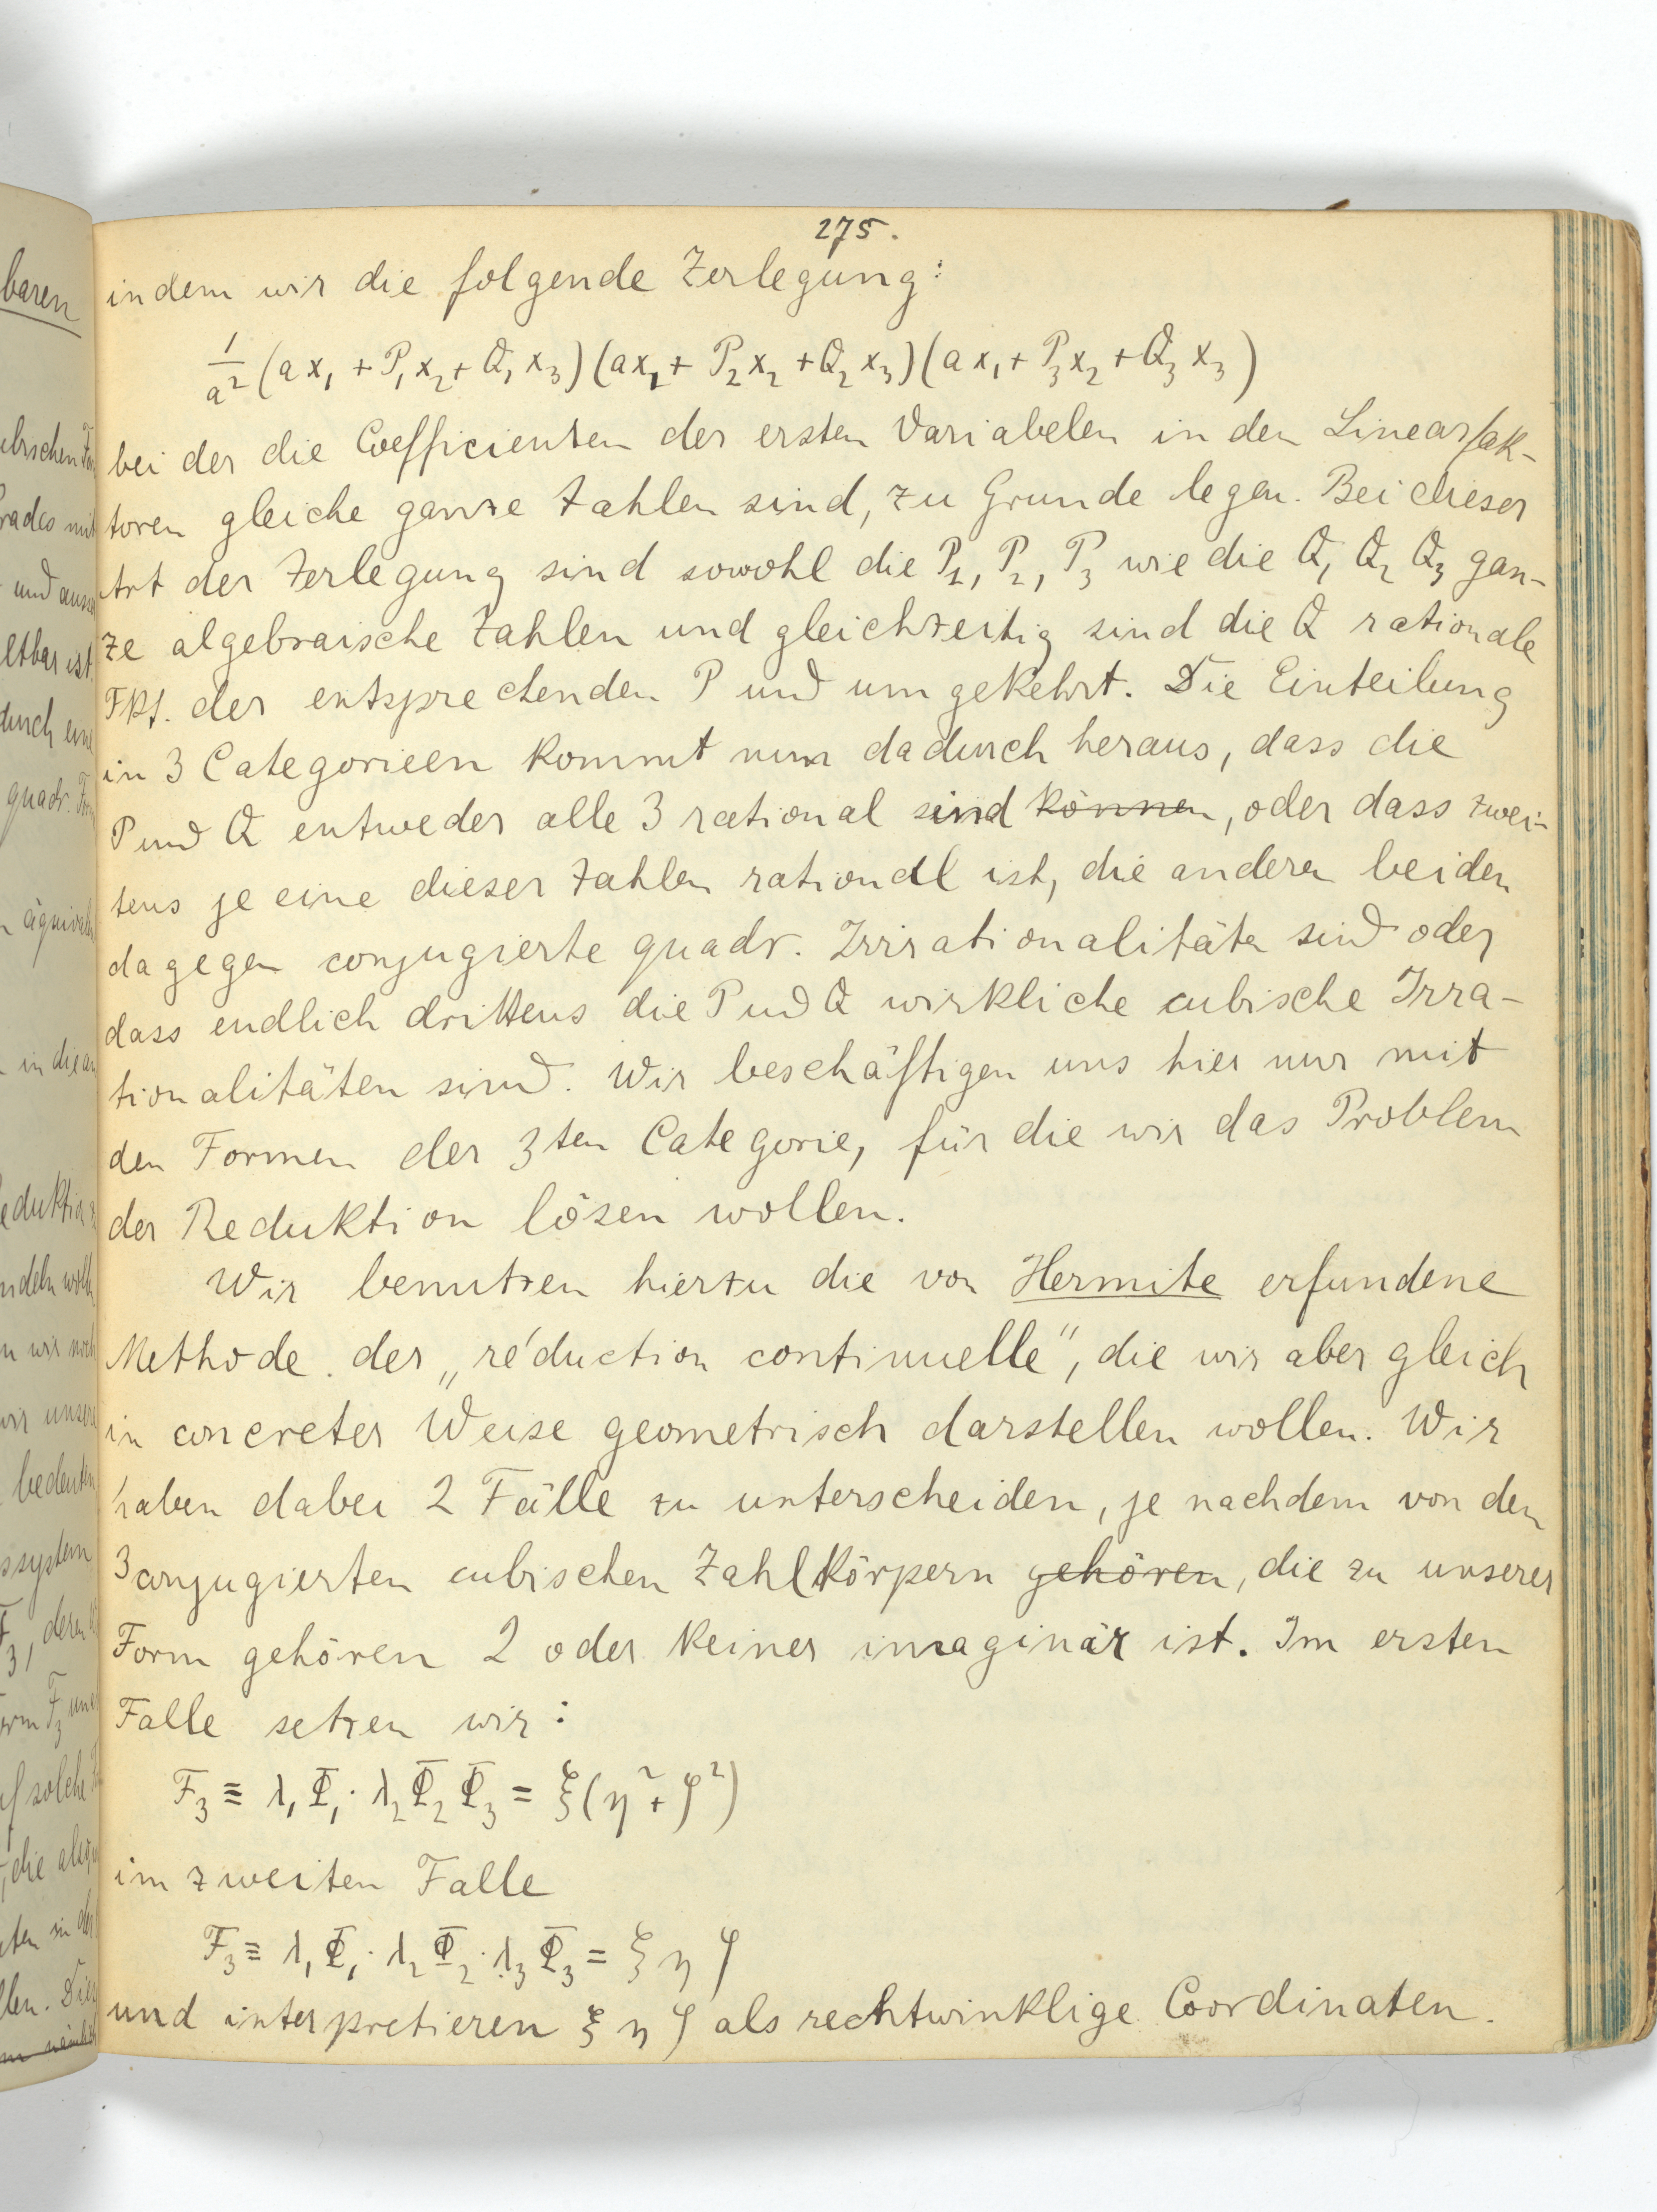 275.
indem wir die folgende Zerlegung:
1/a² (ax₁ + P₁x₂ + Q₁x₃)(ax₁ + P₂x₂ + Q₂x₃)(ax₁ + P₃x₂ + Q₃x₃)
bei der die Coefficienten der ersten Variabelen in den Linearfak-
toren gleiche ganze Zahlen sind, zu Grunde legen. Bei dieser
Art der Zerlegung sind sowohl die P₁, P₂, P₃ wie die Q₁ Q₂ Q₃ gan-
ze algebraische Zahlen und gleichzeitig sind die Q rationale
Fkt. der entsprechenden P und umgekehrt. Die Einteilung
in 3 Categorieen kommt nun dadurch heraus, dass die
P und Q entweder alle 3 rational sind können, oder dass zwei-
tens je eine dieser Zahlen rational ist, die anderen beiden
dagegen conjugierte quadr. Irrationalitäten sind oder
dass endlich drittens die P und Q wirkliche cubische Irra-
tionalitäten sind. Wir beschäftigen uns hier nur mit
den Formen der 3ten Categorie, für die wir das Problem
der Reduktion lösen wollen.
Wir benutzen hierzu die von Hermite erfundene
Methode der „réduction continuelle“, die wir aber gleich
in concreter Weise geometrisch darstellen wollen. Wir
haben dabei 2 Fälle zu unterscheiden, je nachdem von den
3 conjugierten cubischen Zahlkörpern gehören, die zu unserer
Form gehören 2 oder keiner imaginär ist. Im ersten
Falle setzen wir:
F₃ ≡ λ₁Φ₁ · λ₂Φ₂Φ₃ = ξ(η² + ζ²)
im zweiten Falle
F₃ ≡ λ₁Φ₁ · λ₂Φ₂ · λ₃Φ₃ = ξ η ζ
und interpretieren ξ η ζ als rechtwinklige Coordinaten.